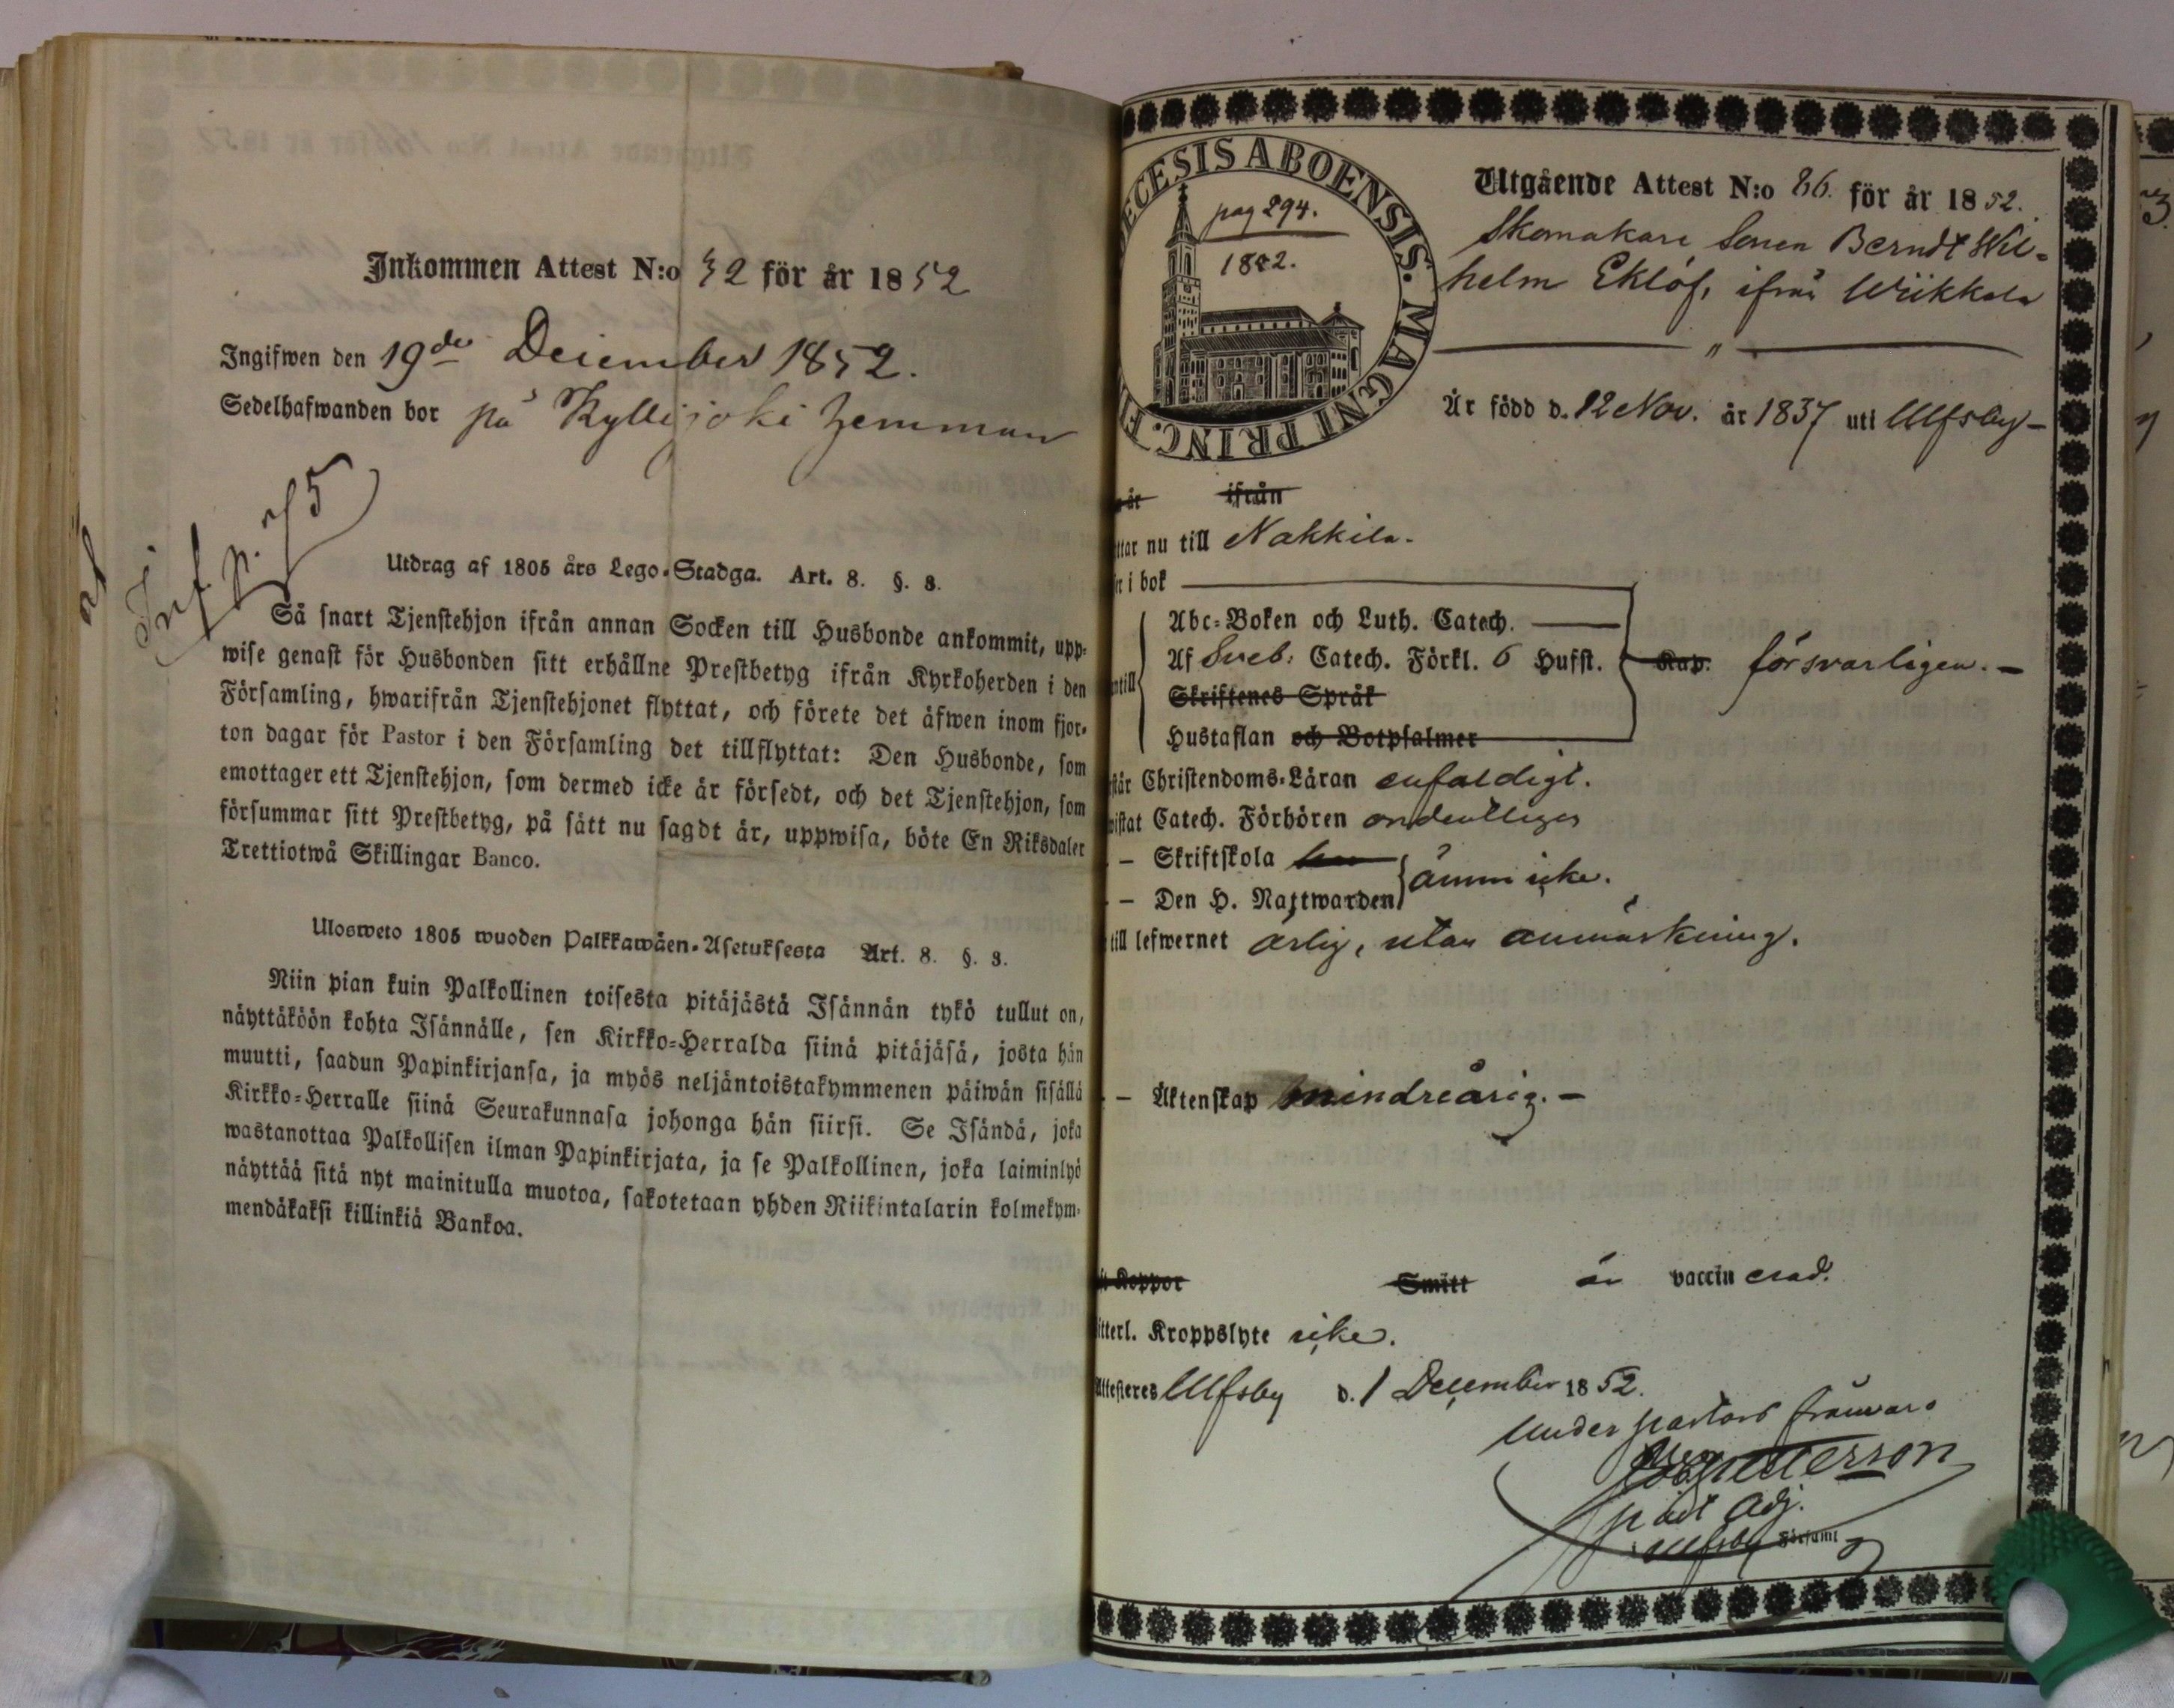 Inkommen Attest N:o 32 för år 1852
Ingifwen den 19de December 1852.
Sedelhafwanden bor på Kyllijoki hemman
Inf. p. 75
Utdrag af 1805 års Lego-Stadga. Art. 8. §. 8.
Så snart Tjenstehjon ifrån annan Socken till Husbonde ankommit, upp-
wise genast för Husbonden sitt erhållne Prestbetyg ifrån Kyrkoherden i den
Församling, hwarifrån Tjenstehjonet flyttat, och förete det äfwen inom fjor-
ton dagar för Pastor i den Församling det tillflyttat: Den Husbonde, som
emottager ett Tjenstehjon, som dermed icke är försedt, och det Tjenstehjon, som
försummar sitt Prestbetyg, på sätt nu sagdt är, uppwisa, böte En Riksdaler
Trettiotwå Skillingar Banco.
Ulosweto 1805 wuoden Palkkawäen-Asetuksesta Art. 8. §. 8.
Niin pian kuin Palkollinen toisesta pitäjästä Isännän tykö tullut on,
näyttäköön kohta Isännälle, sen Kirkko-Herralda siinä pitäjäsä, josta hän
muutti, saadun Papinkirjansa, ja myös neljäntoistakymmenen päiwän sisällä
Kirkko-Herralle siinä Seurakunnasa johonga hän siirsi. Se Isändä, joka
wastanottaa Palkollisen ilman Papinkirjata, ja se Palkollinen, joka laiminlyö
näyttää sitä nyt mainitulla muotoa, sakotetaan yhden Riikintalarin kolmekym-
mendäkaksi killinkiä Bankoa.
ECESIS ABOENSIS. MAGNI PRINC. F
pag 294.
1882.
Utgående Attest N:o 86. för år 1852.
Skomakare Sonen Berndt Wil-
helm Eklöf, ifrån Wiikkala
Är född d. 12 Nov. år 1837 uti Ulfsby
år ifrån
ttar nu till Nakkila.
n i bok
Abc-Boken och Luth. Catech.
Af Sveb. Catech. Förkl. 6 Hufst. Kap. försvarligen.
ntill
Skriftenes Språk
Hustaflan och Botpsalmer
står Christendoms-Läran enfaldigt.
wistat Catech. Förhören ordentligen
– Skriftskola
– Den H. Nattwarden ännu icke.
till lefwernet ärlig, utan anmärkning.
– Äktenskap minderårig.
t Koppor Smitt är vaccinerad.
itterl. Kroppslyte icke.
Attesteres Ulfsby d. 1 December 1852.
Under pastors frånvaro
petterson
Adj.
Ulfsby Församl